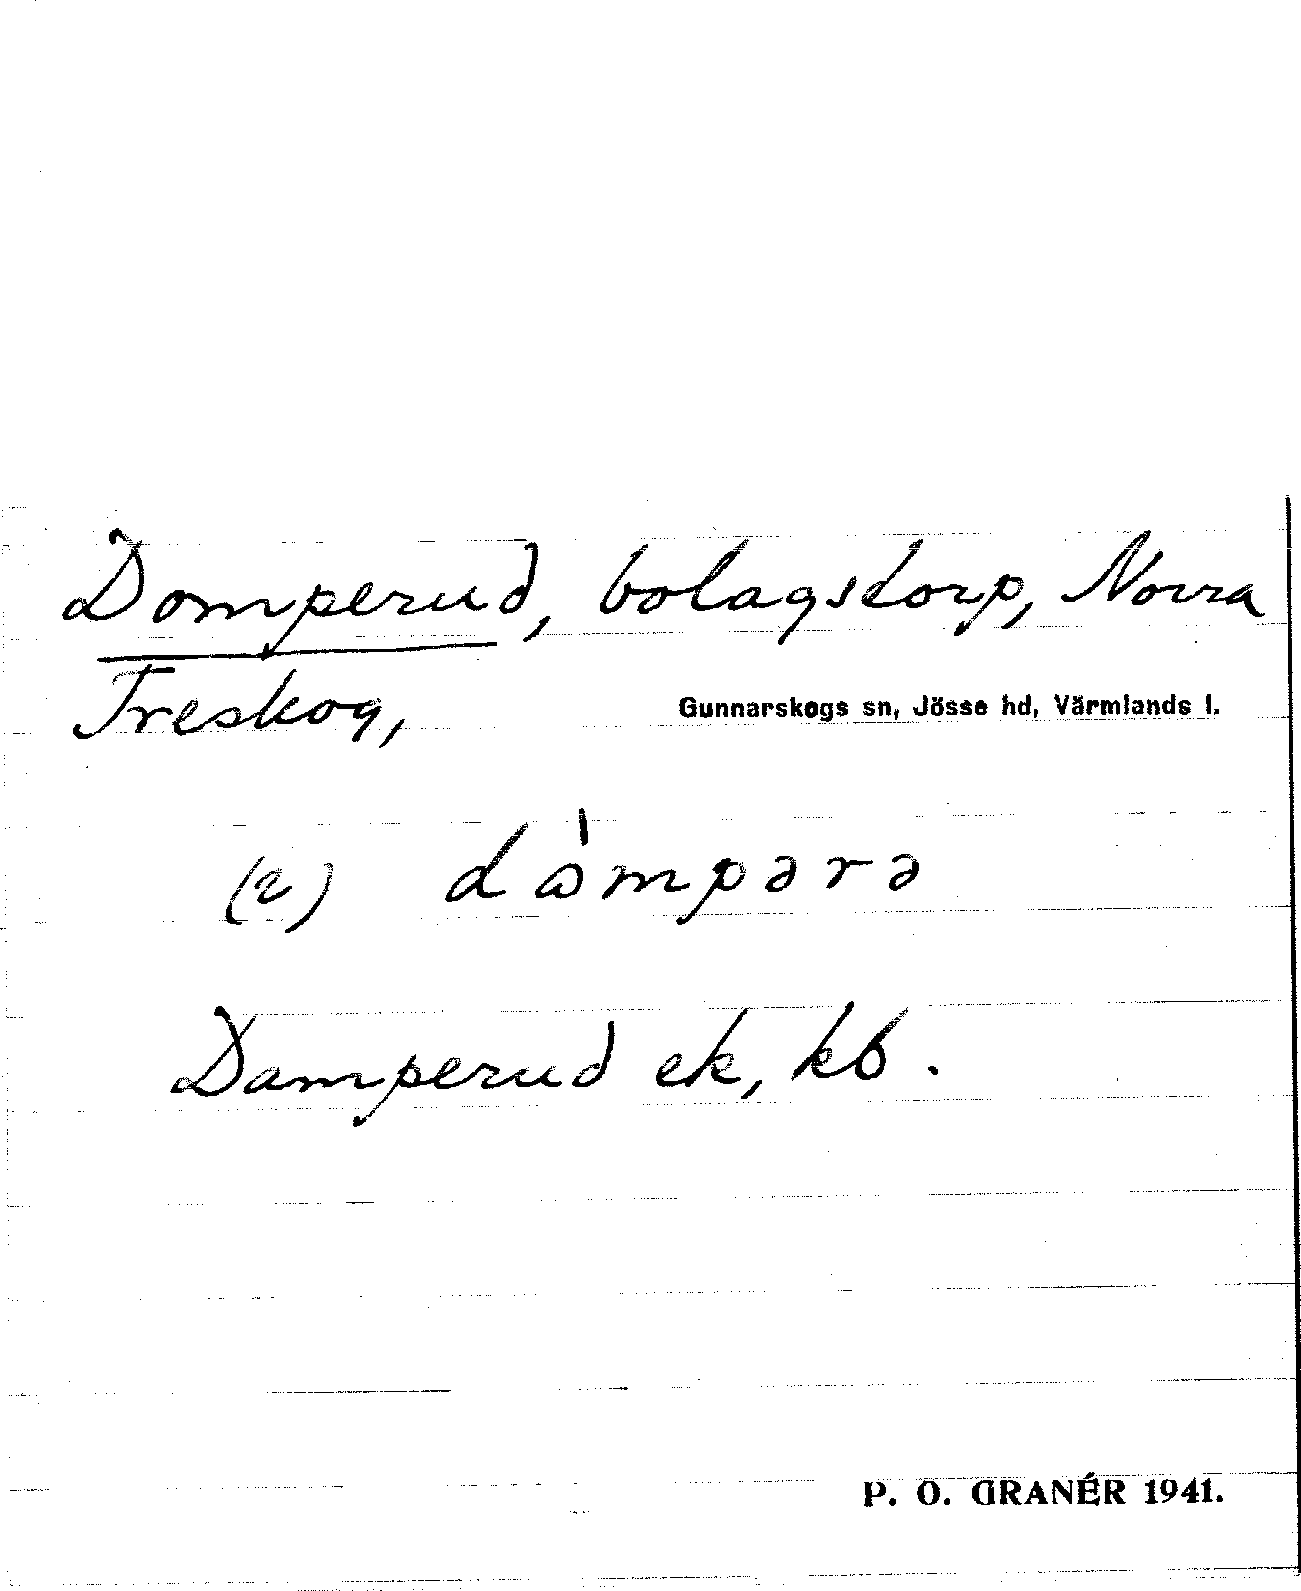 Domperud, bolagstorp, Norra
Treskog, Gunnarskogs sn, Jösse hd, Värmlands l.
(2) dòmpərə
Damperud ek, kb.
P. O. GRANÉR 1941.